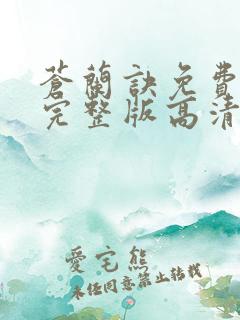 蒼蘭訣免費
完整版高清
愛宅熊
未經同意禁止轉載